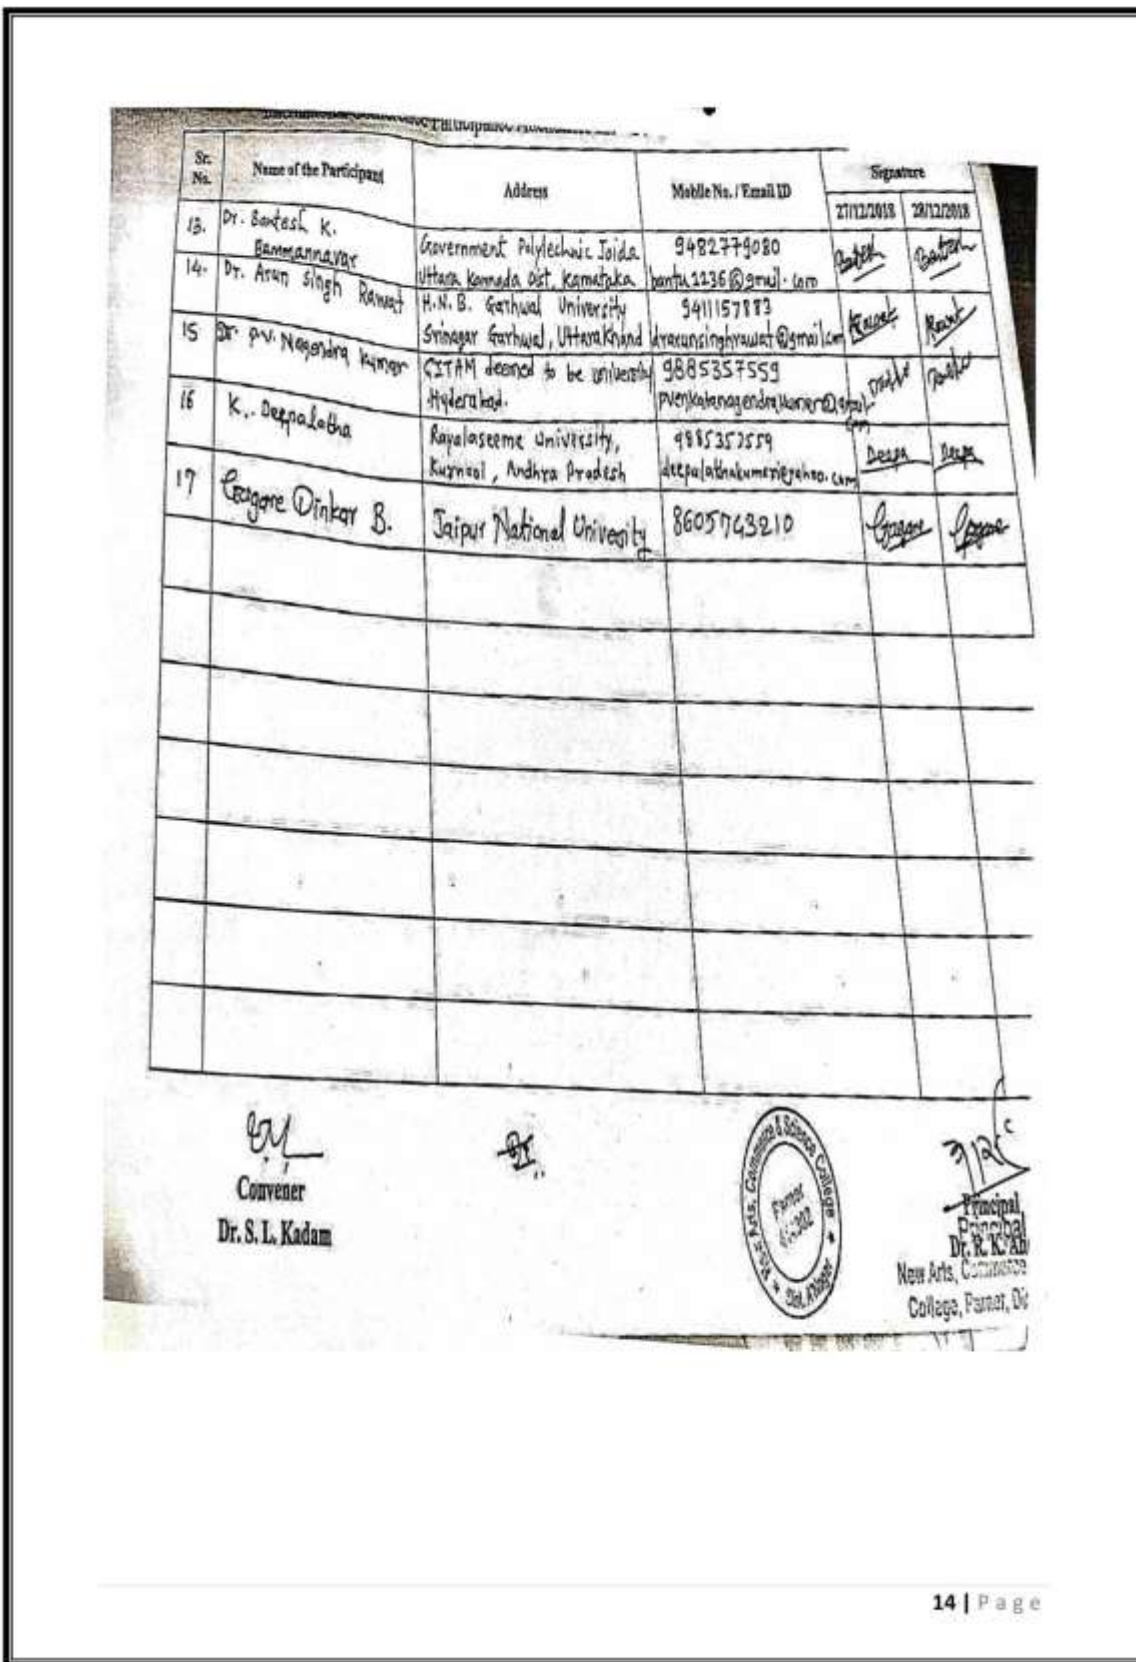 Sr. No. Name of the Participant Address Mobile No. / Email ID Signature
27/12/2018 28/12/2018
13. Dr. Bantesh K. Bammannavar
Government Polylechnic Joida
Uttara Kannada Dist, Karnataka
9482779080
bantu1236@gmail.com
14. Dr. Arun Singh Rawat
H.N.B. Garhwal University
Srinagar Garhwal, Uttarakhand
9411157883
drarunsinghrawat@gmail.com
Rawat
15 Dr. P.V. Nagendra Kumar
GITAM deemed to be university
Hyderabad.
9885357559
16 K. Deepalatha
Rayalaseeme University,
Kurnool, Andhra Pradesh
deepalathakumari@yahoo.com
Deepa Deepa
17 Gagare Dinkar B.
Jaipur National University
8605743210
Gagare Gagare
Convener
Dr. S. L. Kadam
Arts, Commerce & Science College
Parner
Principal
Principal
Dr. R. K.
New Arts, Commerce
College, Parner, Di
14 | Page